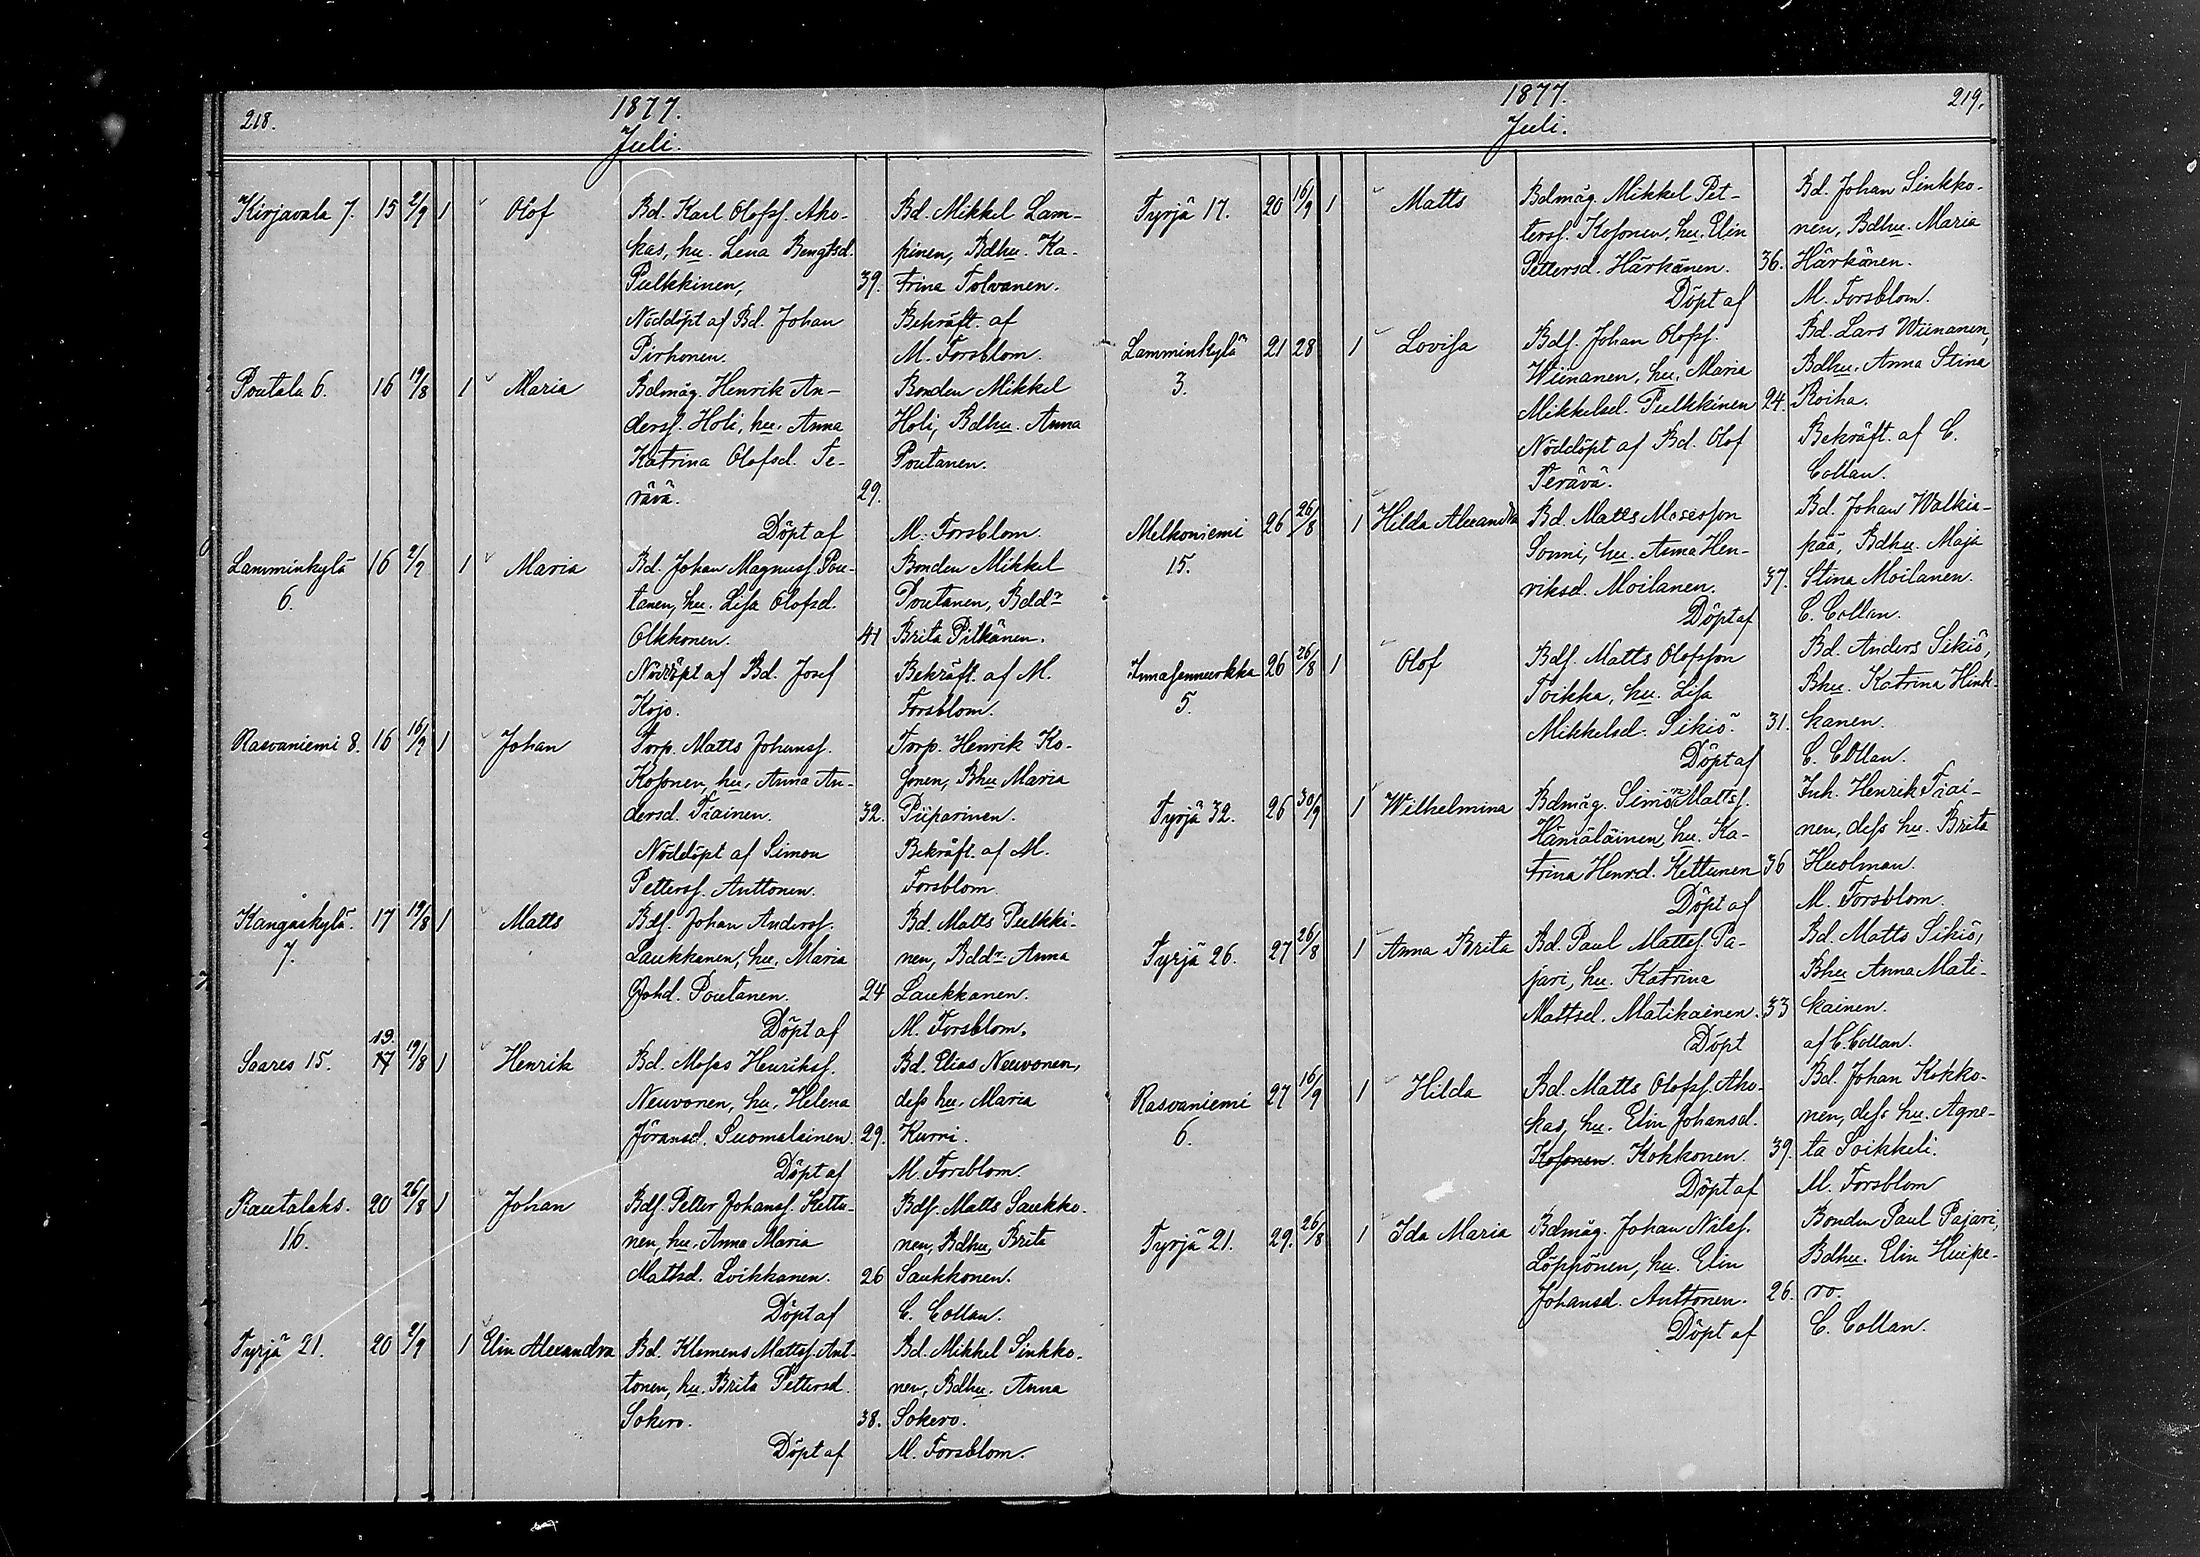 218.
1877.
Juli.
Kirjavala 7. 15 2/9 1 Olof Bd. Karl Olofsf. Aho- Bd. Mikkel Lam-
kas, hu. Lena Bengtsd. pinen, Bdhu. Ka-
Pulkkinen, 39. trina Tolvanen.
Nöddöpt af Bd. Johan Bekräft. af
Pirhonen. M. Forsblom.
Poutala 6. 16 19/8 1 Maria Bdmåg. Henrik An- Bonden Mikkel
dersf. Holi, hu. Anna Holi, Bdhu. Anna
Katrina Olofsd. Te- Poutanen.
rävä. 29.
Döpt af M. Forsblom.
Lamminkylä 16 2/9 1 Maria Bd. Johan Magnusf. Pou- Bonden Mikkel
6. tanen, hu. Lisa Olofsd. Poutanen, Bddr
Olkkonen. 41 Brita Pitkänen.
Nöddöpt af Bd. Josef Bekräft. af M.
Kojo. Forsblom.
Rasvaniemi 8. 16 16/9 1 Johan Torp. Matts Johansf. Torp. Henrik Ko-
Kosonen, hu. Anna An- sonen, Bhu Maria
dersd. Tiainen. 32. Piiparinen.
Nöddöpt af Simon Bekräft. af M.
Pettersf. Anttonen. Forsblom.
Kangaskylä 17 19/8 1 Matts Bdf. Johan Andersf. Bd. Matts Pulkki-
7. Laukkanen, hu. Maria nen, Bddr Anna
Johd. Poutanen. 24 Laukkanen.
Döpt af M. Forsblom.
19.
Saares 15. 17 19/8 1 Henrik Bd. Moses Henriksf. Bd. Elias Neuvonen,
Neuvonen, hu. Helena dess hu. Maria
Jöransd. Suomalainen. 29. Kurri.
Döpt af M. Forsblom.
Rautalaks. 20 26/8 1 Johan Bdf. Petter Johansf. Kettu- Bdf. Matts Saukko-
16. nen, hu. Anna Maria nen, Bdhu. Brita
Mattsd. Loikkanen. 26 Saukkonen.
Döpt af C. Collan.
Tyrjä 21. 20 2/9 1 Elin Alexandra Bd. Klemens Mattsf. Ant- Bd. Mikkel Sinkko-
tonen, hu. Brita Pettersd. nen, Bdhu. Anna
Sokero. 38. Sokero.
Döpt af M. Forsblom.
1877.
219.
Juli.
Tyrjä 17. 20 16/9 1 Matts Bdmåg. Mikkel Pet- Bd. Johan Sinkko-
tersf. Kosonen, hu. Elin nen, Bdhu. Maria
Pettersd. Härkönen. 36. Härkönen.
Döpt af M. Forsblom.
Lamminkylä 21 28 1 Lovisa Bdf. Johan Olofsf. Bd. Lars Wiinanen,
3. Wiinanen, hu. Maria Bdhu. Anna Stina
Mikkelsd. Pulkkinen 24. Roiha.
Nöddöpt af Bd. Olof Bekräft. af C.
Terävä. Collan.
Melkoniemi 26 26/8 1 Hilda Alexandra Bd. Matts Mosesson Bd. Johan Walkia-
15. Sormi, hu. Anna Hen- pää, Bdhu. Maja
riksd. Moilanen. 37. Stina Moilanen.
Döpt af C. Collan.
Inasenvuokka 26 26/8 1 Olof Bdf. Matts Olofsson Bd. Anders Sikiö,
5. Toikka, hu. Lisa Bhu. Katrina Hink-
Mikkelsd. Sikiö. 31. kanen.
Döpt af C. Collan.
Tyrjä 32. 26 30/9 1 Wilhelmina Bdmåg. Simon Mattsf. Inh. Henrik Tiai-
Hämäläinen, hu. Ka- nen, dess hu. Brita
trina Henrd. Kettunen 36 Huolman.
Döpt af M. Forsblom.
Tyrjä 26. 27 26/8 1 Anna Brita Bd. Paul Mattsf. Pa- Bd. Matts Sikiö,
jari, hu. Katrina Bhu Anna Mati-
Mattsd. Matikainen. 33 kainen.
Döpt af C. Collan.
Rasvaniemi 27 16/9 1 Hilda Bd. Matts Olofsf. Aho- Bd. Johan Kokko-
6. kas, hu. Elin Johansd. nen, dess hu. Agne-
Kosonen. Kokkonen. 39. ta Soikkeli.
Döpt af M. Forsblom
Tyrjä 21. 29. 26/8 1 Ida Maria Bdmåg. Johan Nilsf. Bonden Paul Pajari,
Löppönen, hu. Elin Bdhu. Elin Huipe-
Johansd. Anttonen. 26. ro.
Döpt af C. Collan.